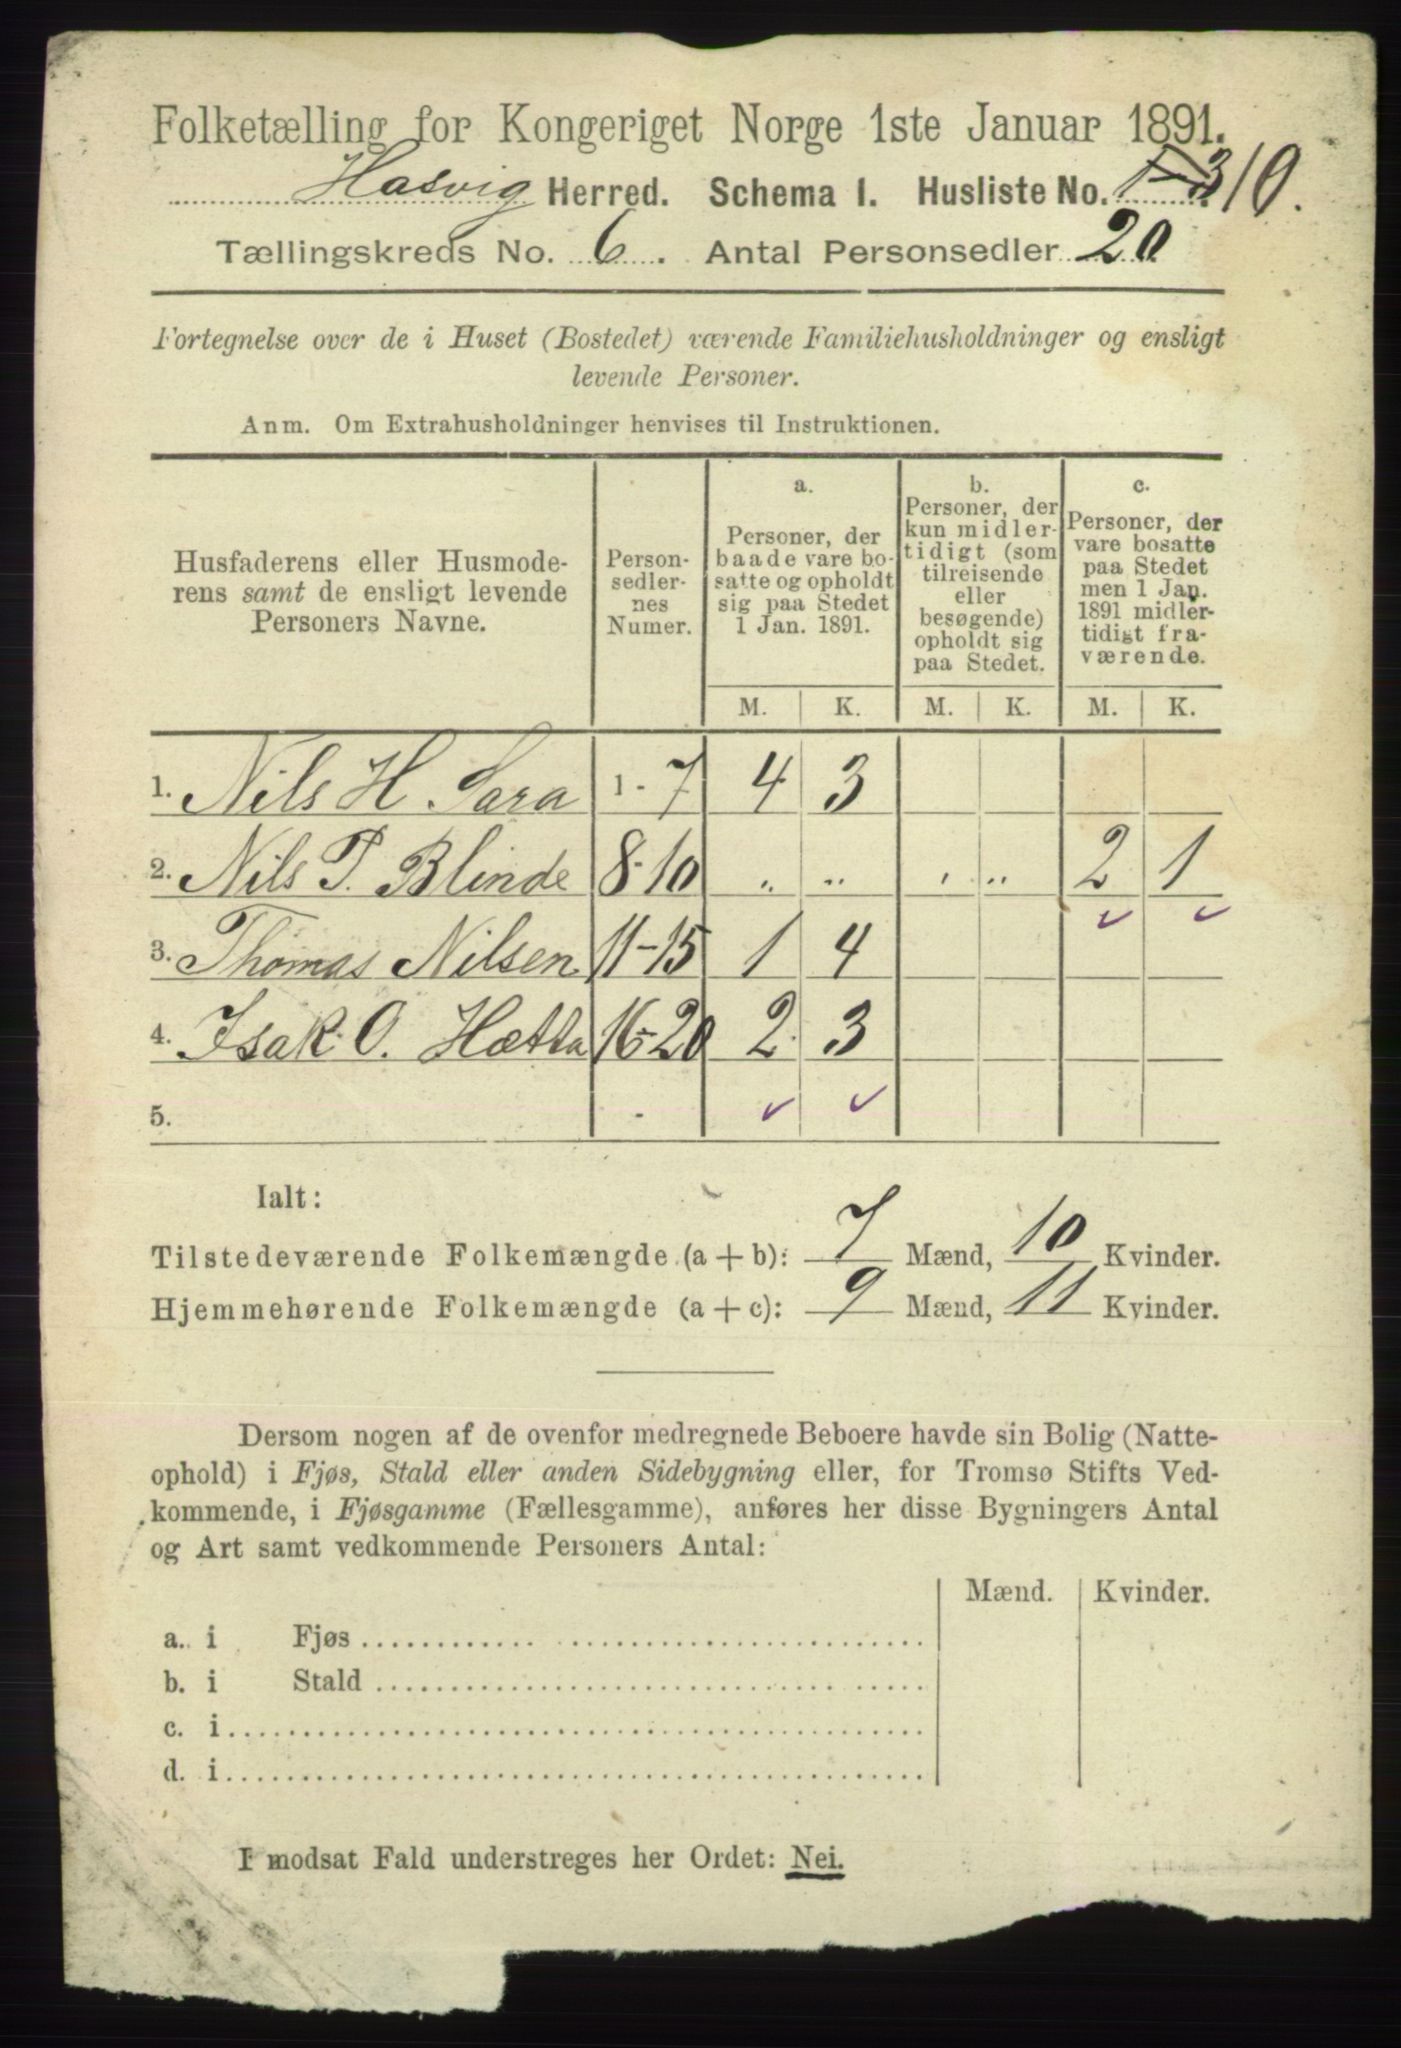 Folketælling for Kongeriget Norge 1ste Januar 1891.
Hasvig Herred. Schema 1. Husliste No. 10.
Tællingskreds No. 6. Antal Personsedler 20
Fortegnelse over de i Huset (Bostedet) værende Familiehusholdninger og ensligt
levende Personer.
Anm. Om Extrahusholdninger henvises til Instruktionen.
Husfaderens eller Husmode-
rens samt de ensligt levende
Personers Navne.
Person-
sedler-
nes
Numer.
a.
Personer, der
baade vare bo-
satte og opholdt
sig paa Stedet
1 Jan. 1891.
b.
Personer, der
kun midler-
tidigt (som
tilreisende
eller
besøgende)
opholdt sig
paa Stedet.
c.
Personer, der
vare bosatte
paa Stedet
men 1 Jan.
1891 midler-
tidigt fra-
værende.
M. K. M. K. M. K.
1. Nils H. Sara 1-7 4 3
2. Nils P. Blinde 8-10 „ „ „ „ 2 1
3. Thomas Nilsen 11-15 1 4
4. Isak O. Hætta 16-20 2 3
5.
Ialt:
Tilstedeværende Folkemængde (a + b): 7 Mænd, 10 Kvinder.
Hjemmehørende Folkemængde (a + c): 9 Mænd, 11 Kvinder.
Dersom nogen af de ovenfor medregnede Beboere havde sin Bolig (Natte-
ophold) i Fjøs, Stald eller anden Sidebygning eller, for Tromsø Stifts Ved-
kommende, i Fjøsgamme (Fællesgamme), anføres her disse Bygningers Antal
og Art samt vedkommende Personers Antal:
Mænd. Kvinder.
a. i Fjøs
b. i Stald
c. i
d. i
I modsat Fald understreges her Ordet: Nei.